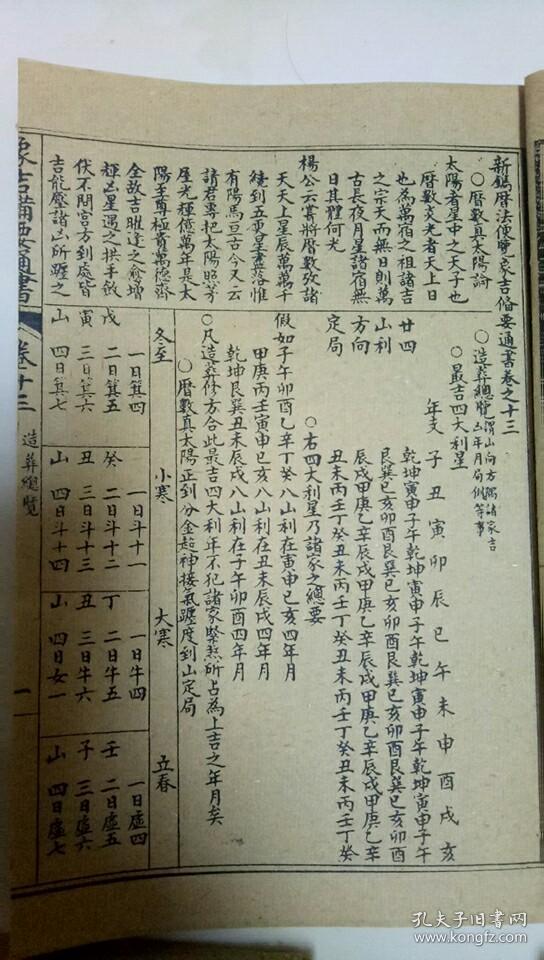 新鐫曆法便覽象吉備要通書卷之十三
○曆數真太陽論
太陽者星中之天子也
曆數炎光者天上日
也為萬宿之祖諸吉
之宗天而無日則萬
古長夜月星諸宿無
日其體何光
楊公云賓將曆數攷諸
天天上星辰萬萬千
繞到五更星盡落惟
有陽烏亘古今又云
請君專把太陽照
屋光輝億萬年是太
陽至尊極貴萬德齊
全故吉曜逢之愈增
輝凶星遇之拱手斂
伏不問宮方到處皆
吉能壓諸凶所躔之
○造葬總覽 謂山向方隅諸家吉凶年月局例等事
○最吉四大利星
年支 子丑寅卯辰巳午未申酉戌亥
廿四山利方向定局
乾坤寅申子午乾坤寅申子午乾坤寅申子午乾坤寅申子午
艮巽巳亥卯酉艮巽巳亥卯酉艮巽巳亥卯酉艮巽巳亥卯酉
辰戌甲庚乙辛辰戌甲庚乙辛辰戌甲庚乙辛辰戌甲庚乙辛
丑未丙壬丁癸丑未丙壬丁癸丑未丙壬丁癸丑未丙壬丁癸
○右四大利星乃諸家之總要
假如子午卯酉乙辛丁癸八山利在寅申巳亥四年月
甲庚丙壬寅申巳亥八山利在丑未辰戌四年月
乾坤艮巽丑未辰戌八山利在子午卯酉四年月
○凡造葬修方合此最吉四大利年不犯諸家緊煞所占為上吉之年月矣
○曆數真太陽正到分金起神接氣躔度到山定局
冬至 小寒 大寒 立春
一日箕四 一日斗十一 一日牛四 一日虛四
戌 二日箕五 癸 二日斗十二 丁 二日牛五 壬 二日虛五
寅 三日箕六 丑 三日斗十三 丑 三日牛六 子 三日虛六
山 四日箕七 山 四日斗十四 山 四日女一 山 四日虛七
象吉備要通書 卷十三 造葬總覽 一
孔夫子旧书网
www.kongfz.com